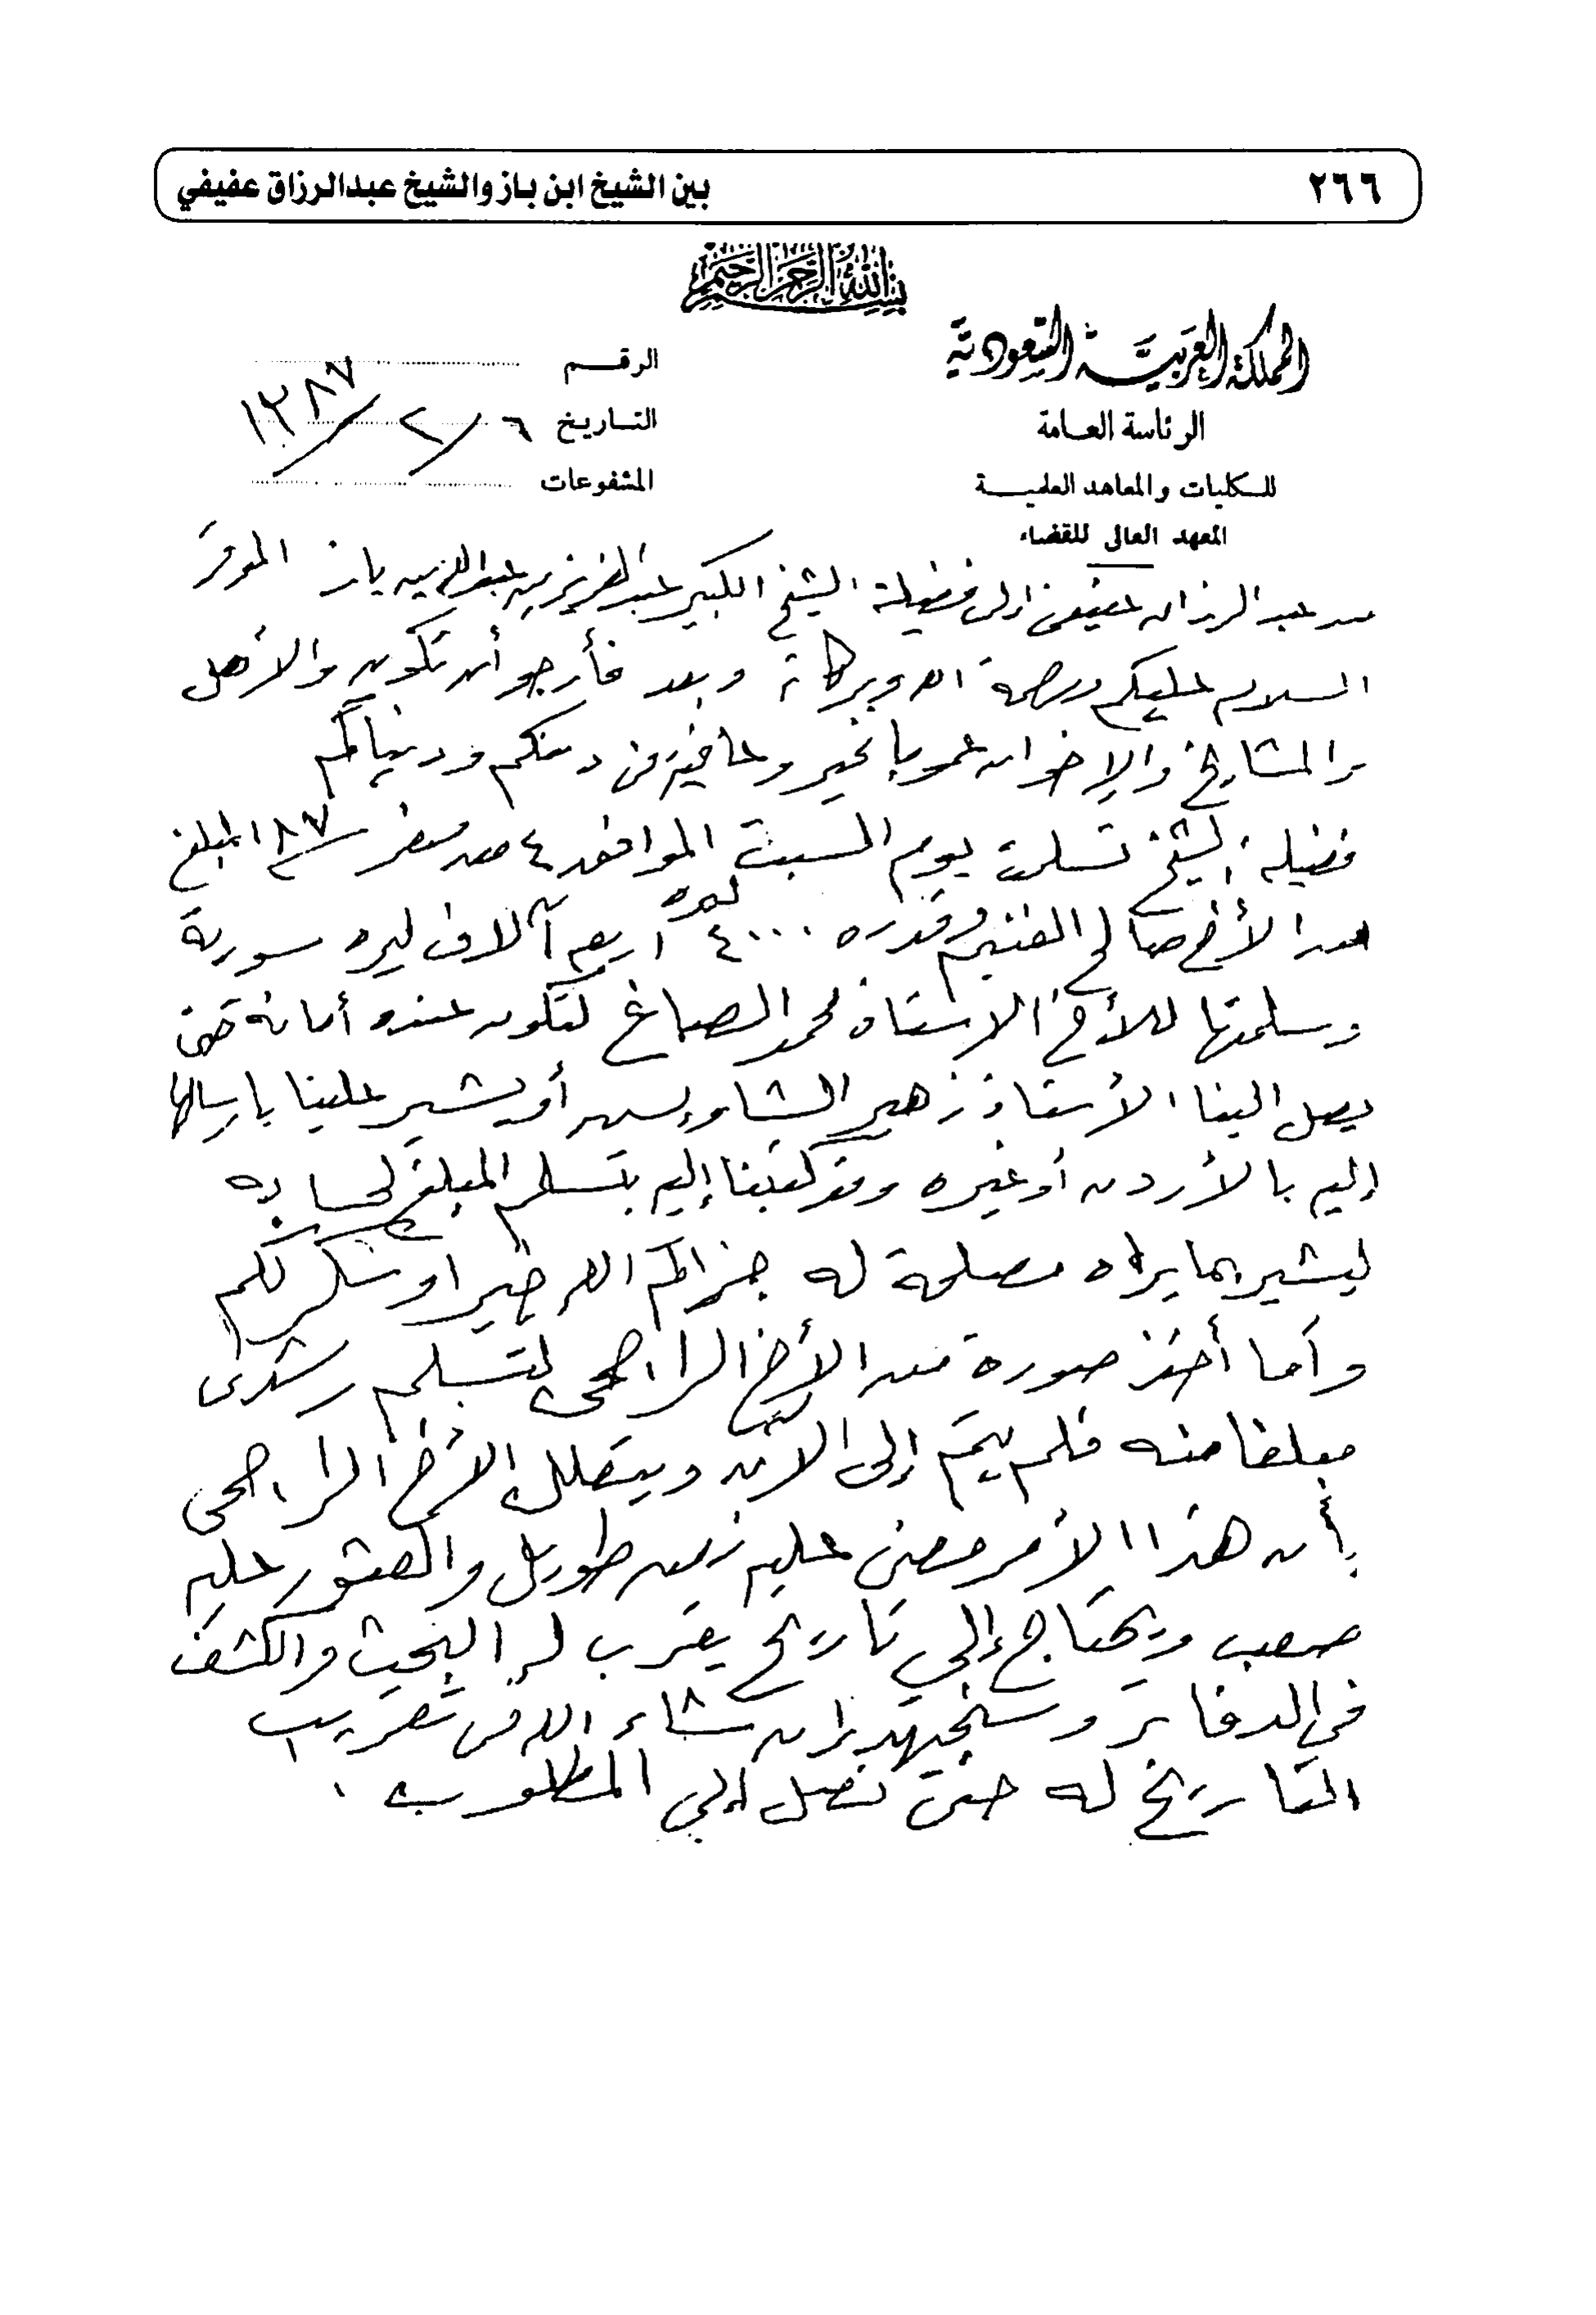 ٢٦٦
بين الشيخ ابن باز والشيخ عبدالرزاق عفيفي
بسم الله الرحمن الرحيم
المملكة العربية السعودية
الرئاسة العامة
للكليات والمعاهد العلمية
المعهد العالى للقضاء
الرقم
التاريخ ٦/٢/١٣٨٧
المشفوعات
من عبد الرزاق عفيفى إلى فضيلة الشيخ الكبير عبد العزيز بن عبد الله بن باز الموقر
السلام عليكم ورحمة الله وبركاته وبعد فأرجو أن تكون والأهل
والمشايخ والإخوان عموما بخير وعافية فى دينكم ودنياكم
فضيلة الشيخ تسلمت يوم السبت الموافق ٤ من صفر ٨٧ المبلغ
من الأخ صالح الغنيم وقدره ٤٠٠٠ ليرة أربعة آلاف ليره سورية
وسلمتها للأخ الاستاذ محمد الصباغ لتكون عنده أمانة حتى
يصل الينا الأستاذ زهير الشاويس أو يشير علينا بإرسالها
إليه بالأردن أو غيره وقد كتبنا إليه بتسلم المبلغ لحسابه
ليشير بما يراه مصلحة له جزاكم الله خيرا وشكر لكم
وأما أخذ صورة من الأخ الراجحى لتسلم رشدى
مبلغا منه فلم يتم إلى الآن ويتعلل الأخ الراجحى
بأن هذا الأمر مضى عليه زمن طويل والعثور عليه
صعب ويحتاج إلى تاريخ يقرب له البحث والكشف
فى الدفاتر وسنجتهد إن شاء الله فى تقريب
التاريخ له حتى نصل إلى المطلوب .